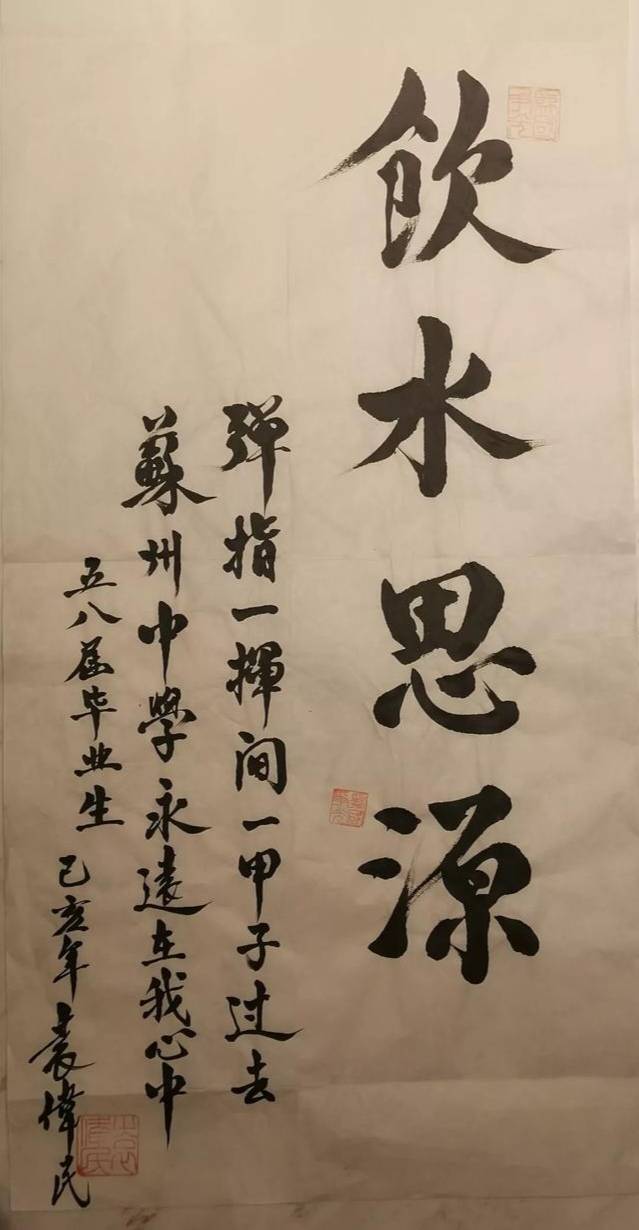 飲水思源
弹指一揮间一甲子过去
蘇州中學永遠在我心中
五八届毕业生 己亥年 袁偉民